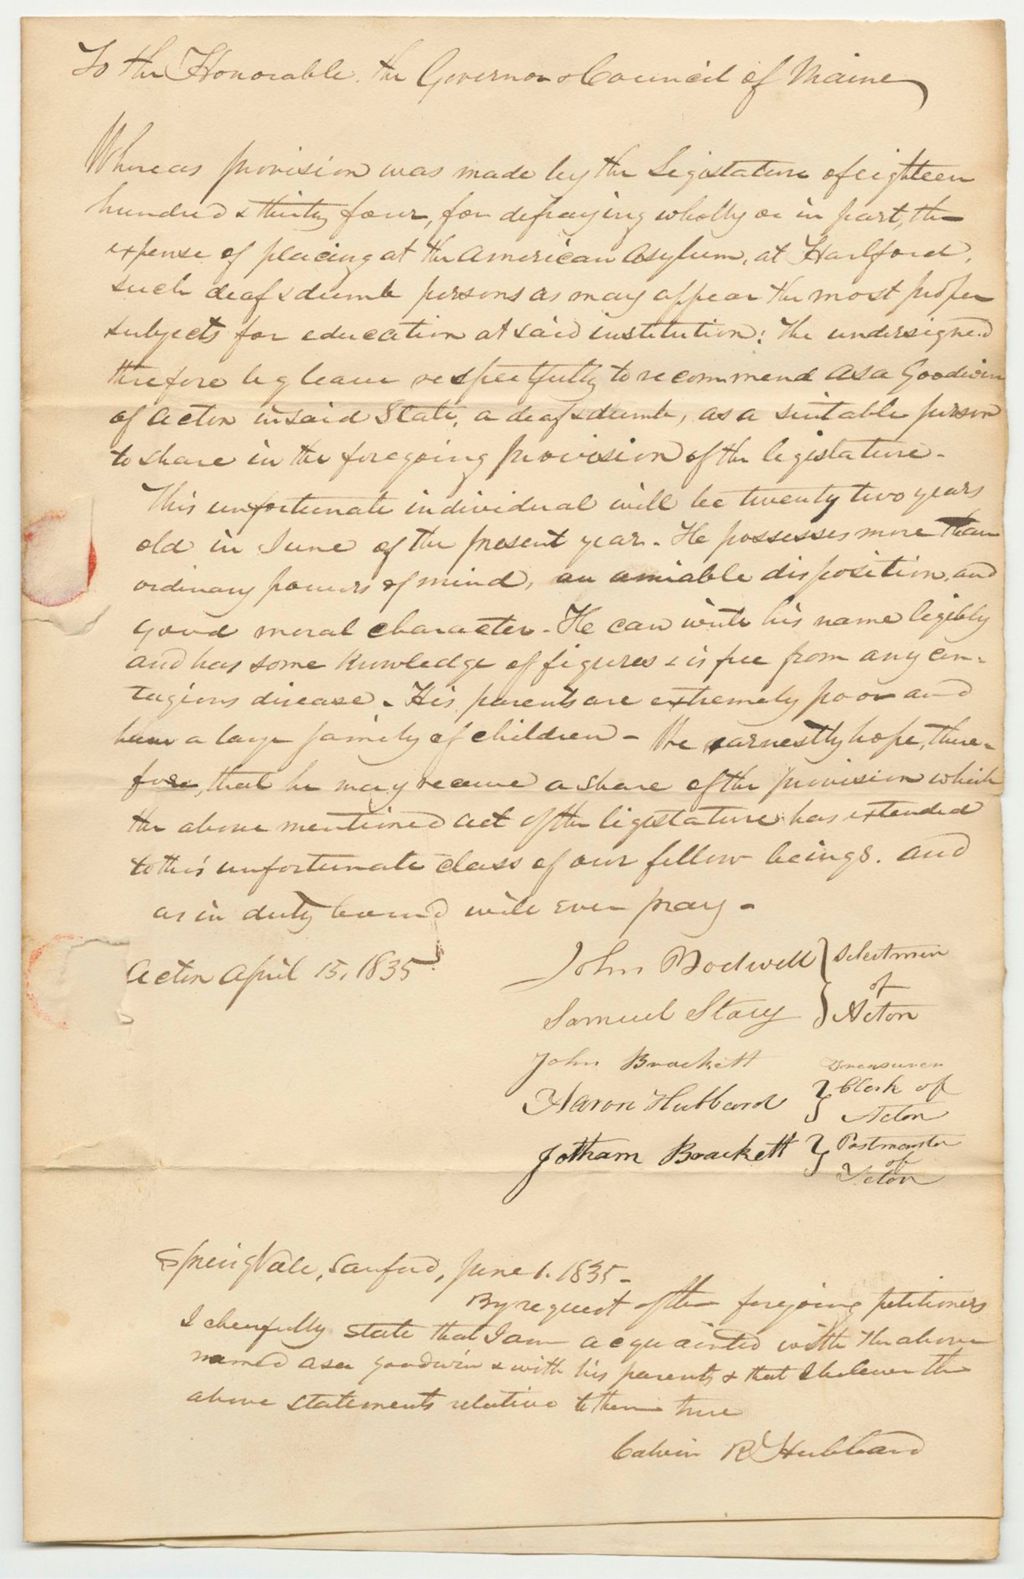 To the Honorable the Governor & Council of Maine
Whereas provision was made by the Legislature of eighteen
hundred & thirty four, for defraying wholly or in part, the
expense of placing at the American Asylum, at Hartford,
such deaf & dumb persons as may appear the most proper
subjects for education at said institution: The undersigned
therefore beg leave respectfully to recommend Asa Goodwin
of Acton in said State, a deaf & dumb, as a suitable person
to share in the foregoing provision of the legislature -
This unfortunate individual will be twenty two years
old in June of the present year - He possesses more than
ordinary powers of mind, an amiable disposition, and
good moral character - He can write his name legibly
and has some knowledge of figures & is free from any con-
tagious disease - His parents are extremely poor and
have a large family of children - We earnestly hope, there-
fore, that he may receive a share of the provision which
the above mentioned act of the legislature has extended
to this unfortunate class of our fellow beings. And
as in duty bound will ever pray -
Acton April 15, 1835
John Bodwell } Selectmen
of
Samuel Stacy } Acton
John Brackett Treasurer
Aaron Hubbard } Clerk of
Acton
Jotham Brackett } Postmaster
of
Acton
SpringVale, Sanford, June 1. 1835 -
By request of the foregoing petitioners
I cheerfully state that I am acquainted with the above
named Asa Goodwin & with his parents & that I believe the
above statements relative to them true
Calvin R Hubbard